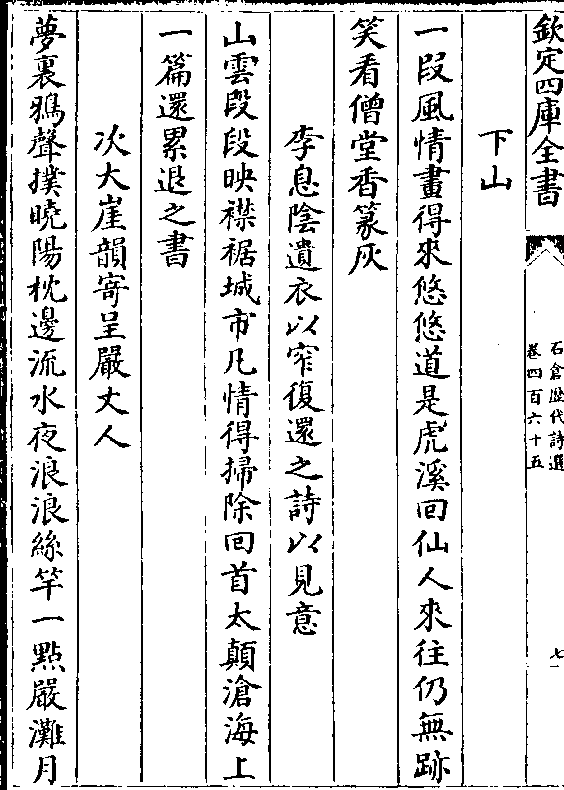 欽定四庫全書
石倉歴代詩選
卷四百六十五
七
下山
一段風情畫得來悠悠道是虎溪回仙人來往仍無跡
笑看僧堂香篆灰
李息陰遺衣以窄復還之詩以見意
山雲段段映襟裾城市凡情得掃除回首太顛滄海上
一篇還累退之書
次大崖韻寄呈嚴丈人
夢裏鴉聲撲曉陽枕邊流水夜浪浪絲竿一點嚴灘月